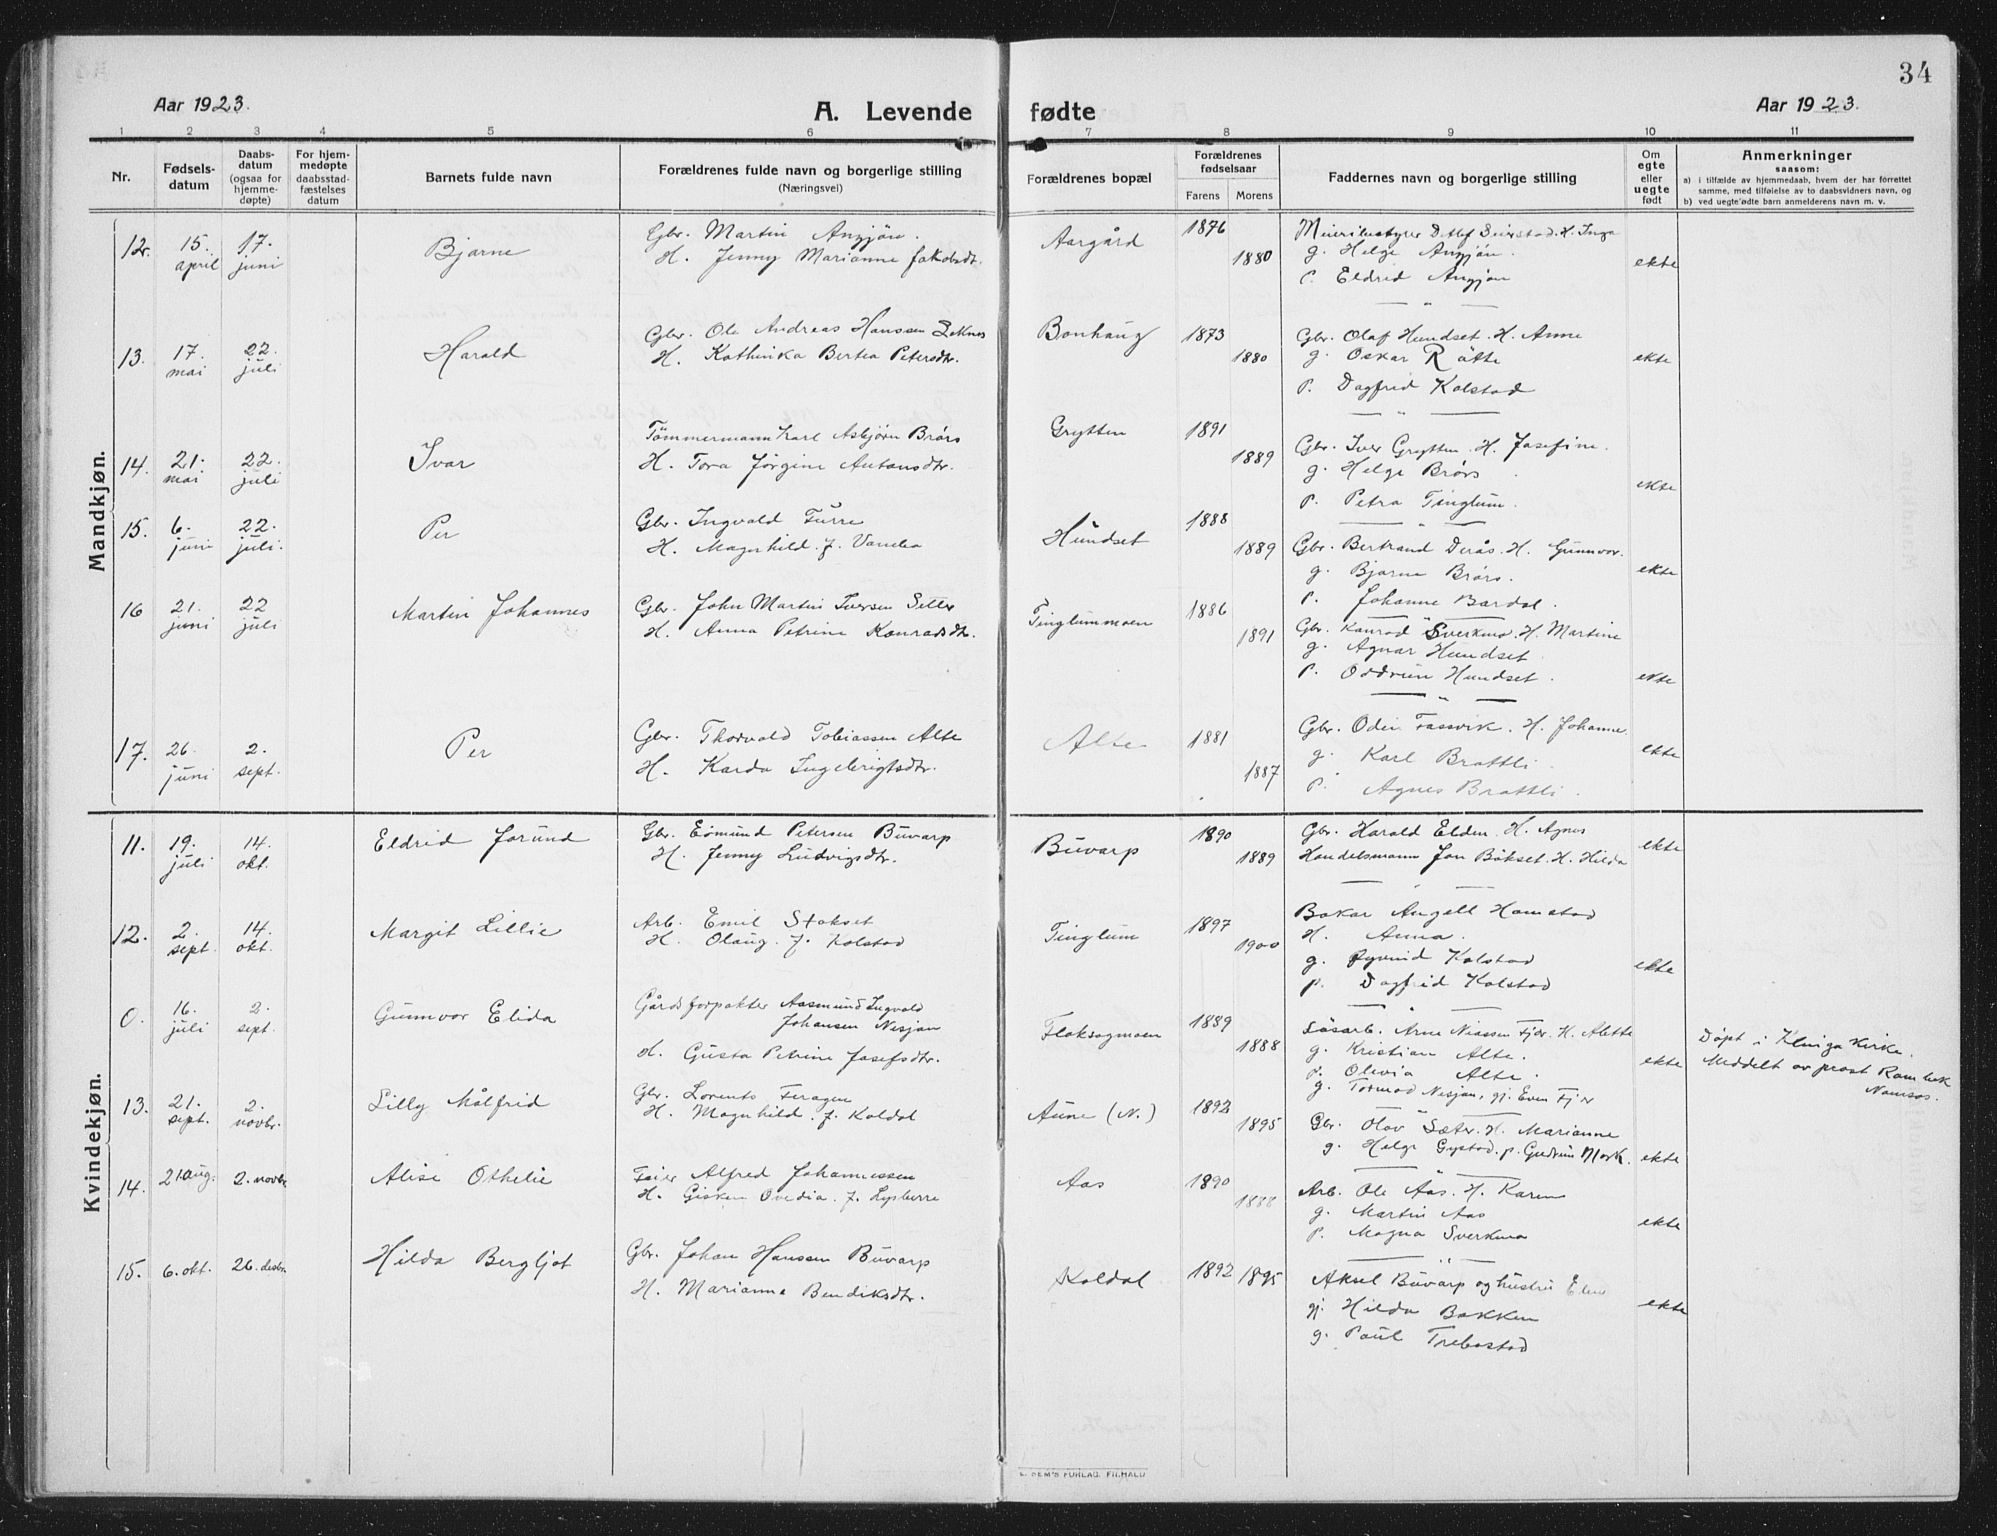 34
Aar 1923.
A. Levende fødte
Aar 1923.
1 2 3 4 5 6 7 8 9 10 11
Nr.
Fødsels-
datum
Daabs-
datum
(ogsaa for
hjemme-
døpte)
For hjem-
medøpte
daabsstad-
fæstelses
datum
Barnets fulde navn
Forældrenes fulde navn og borgerlige stilling
(Næringsvei)
Forældrenes bopæl
Forældrenes
fødselsaar
Farens Morens
Faddernes navn og borgerlige stilling
Om
egte
eller
uegte
født
Anmerkninger
saasom:
a) i tilfælde av hjemmedaab, hvem der har forrettet
samme, med tilføielse av to daabsvidners navn, og
b) ved uegte fødte barn anmelderens navn m. v.
Mandkjøn.
12. 15. april 17. juni Bjarne
Gbr. Martin
H. Jenny Marianne Jakobsdtr.
Aargård 1876 1880
Meieribestyrer Detlef H. Inga
g. Helge
p. Eldrid
ekte
13. 17. mai 22. juli Harald
Gbr. Ole Andreas Hanssen
H. Kathinka Bertea Petersdtr.
Bonhaug 1873 1880
Gbr. Olaf Hundset. H. Anne
g. Oskar Råtte
p. Dagfrid Kolstad
ekte
14. 21. mai 22. juli Ivar
Tømmermann Karl Asbjørn Brørs
H. Tora Jørgine Antonsdtr.
Grytten 1891 1889
Gbr. Iver Grytten. H. Josefine.
g. Helge Brørs
p. Petra Tinglum.
ekte
15. 6. juni 22. juli. Per
Gbr. Ingvald Furre
H. Magnhild. f.
Hundset 1888 1889
Gbr. Bertrand Derås. H. Gunnvor.
g. Bjarne Brørs.
p. Johanne Bardal.
ekte
16 21. juni 22 juli Martin Johannes
Gbr. John Martin Iversen
H. Anna Petrine Konradsdtr.
Tinglummoen 1886 1891
Gbr. Konrad Sverkmo. H. Martine
g. Agnar Hundset
p. Oddrun Hundset.
ekte
17. 26. juni 2. sept. Per
Gbr. Thorvald Tobiassen Alte
H. Karda Ingebrigtsdtr.
Alte 1881 1887
Gbr. Odin Fassvik. H. Johanne
g. Karl Brattli
p. Agnes Brattli.
ekte
Kvindekjøn.
11. 19. juli 14. okt. Eldrid Jorund
Gbr. Edmund Petersen Buvarp
H. Jenny Ludvigsdtr.
Buvarp 1890 1889
Gbr. Harald Elden. H. Agnes
Handelsmann Jon Bökset. H. Hilda
ekte
12. 2. sept. 14. okt. Margit Lillie
Arb. Emil Stokset
H. Olaug. f. Kolstad
Tinglum 1897 1900
Baker Angell Homstad
H. Anna.
g. Øyvind Kolstad
p. Dagfrid Kolstad
ekte
0. 16. juli 2. sept. Gunnvor Elida
Gårdsforpakter Aasmund Ingvald
Johansen Nesjan
H. Gusta Petrine Josefsdtr.
Flaksagmoen 1889 1888
Løsarb. Arne Niassen Fjær. H. Alette
g. Kristian Alte.
p. Olevia Alte.
g. Tormod Nesjan, gj. Even Fjær
ekte
Døpt i Klinga Kirke.
Meddelt av prost
Namsos.
13. 21. sept. 2. novbr. Lilly Målfrid
Gbr. Lorents Feragen
H. Magnhild. f. Koldal
Aune (N.) 1892 1895
Gbr. Olav Sæter. H. Marianne
g. Helge Gystad. p. Gudrun Mork.
ekte
14. 21. aug. 2. novbr. Alise Othelie
Feier Alfred Johannessen
H. Gisken Ovedia. f.
Aas 1890 1888
Arb. Ole Aas. H. Karen
g. Martin Aas
p. Magna Sverkmo
ekte
15. 6. okt. 26. desbr. Hilda Bergljot
Gbr. Johan Hanssen Buvarp
H. Marianne Bendiksdtr.
Koldal 1892 1895
Aksel Buvarp og hustru
gj. Hilda Bakken
g. Paul Trebostad
ekte
E. SEM'S FORLAG, F.HALD